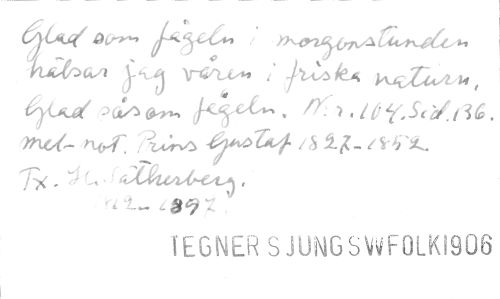 Glad som fågeln i morgonstunden
hälsar jag våren i friska naturn,
Glad såsom fågeln. N:r. 104. Sid. 136.
mel-not. Prins Gustaf 1827-1852.
Tx. H. Sätherberg.
1812-1897.
TEGNER SJUNG SW FOLK 1906